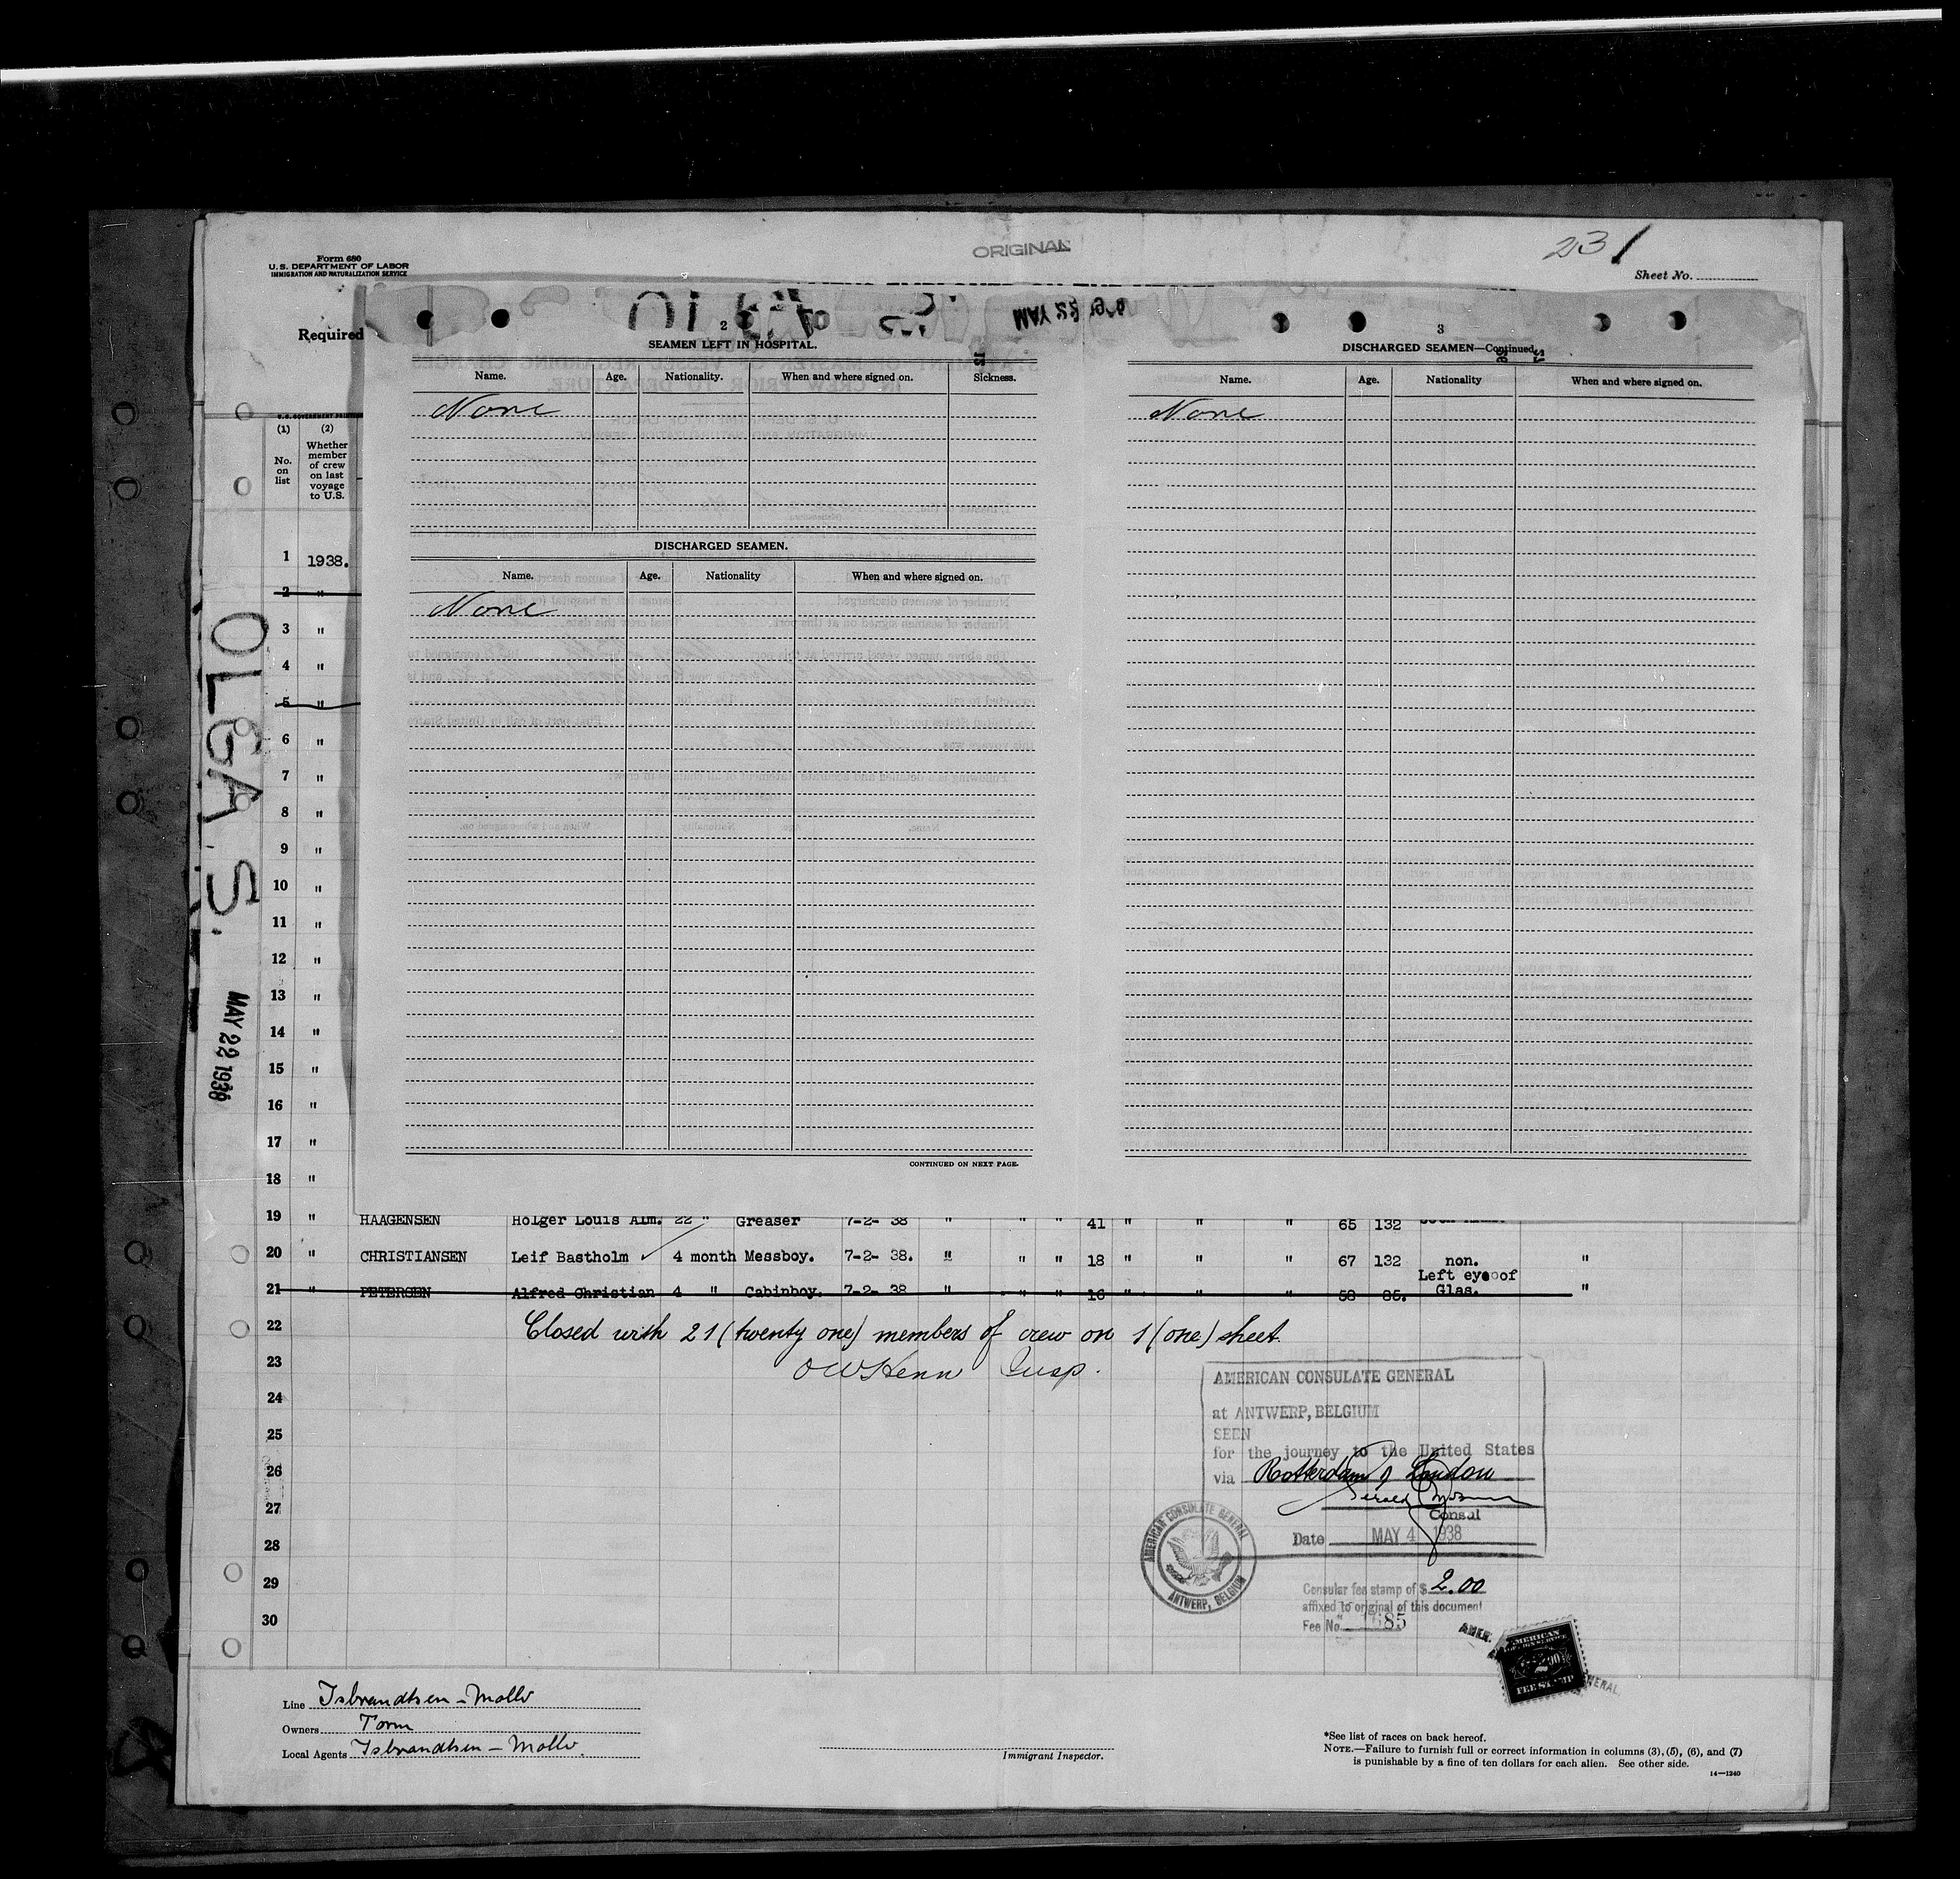 ORIGINAL
231
Form 680
U.S. DEPARTMENT OF LABOR
IMMIGRATION AND NATURALIZATION SERVICE
Sheet No.
Required
MAY 22 1938
2
SEAMEN LEFT IN HOSPITAL.
Name. Age. Nationality. When and where signed on. Sickness.
None
DISCHARGED SEAMEN.
Name. Age. Nationality When and where signed on.
None
CONTINUED ON NEXT PAGE.
3
DISCHARGED SEAMEN—Continued.
Name. Age. Nationality When and where signed on.
None
(1) (2)
No. on list
Whether member of crew on last voyage to U.S.
1 1938.
2 "
3 "
4 "
5 "
6 "
7 "
8 "
9 "
10 "
11 "
12 "
13 "
14 "
15 "
16 "
17 "
18 "
OLGA S.
MAY 22 1938
19 " HAAGENSEN Holger Louis Alm. 22 " Greaser 7-2- 38 " " " 41 " " " 65 132
20 " CHRISTIANSEN Leif Bastholm 4 month Messboy. 7-2- 38. " " " 18 " " " 67 132 non. "
Left eye of
21 " PETERSEN Alfred Christian 4 " Cabinboy. 7-2- 38 " " " 16 " " " 58 85. Glas. "
22 Closed with 21 (twenty one) members of crew on 1 (one) sheet.
23 Insp.
24
25
26
27
28
29
30
AMERICAN CONSULATE GENERAL
at ANTWERP, BELGIUM
SEEN
for the journey to the United States
via Rotterdam London
Consul
Date MAY 4 1938
AMERICAN CONSULATE GENERAL
ANTWERP, BELGIUM
Consular fee stamp of $ 2.00
affixed to original of this document
Fee No.
AMERICAN
FEE STAMP
Line Isbrandtsen - Moller
Owners Torm
Local Agents Isbrandtsen - Moller.
Immigrant Inspector.
*See list of races on back hereof.
NOTE.—Failure to furnish full or correct information in columns (3), (5), (6), and (7)
is punishable by a fine of ten dollars for each alien. See other side.
14—1240